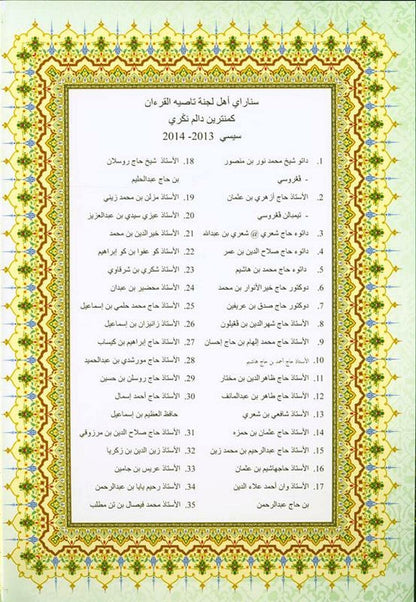 سناراي أهل لجنة تاصيه القرءان
كمنترين دالم نڬري
سيسي 2013- 2014
1. داتو شيخ محمد نور بن منصور
- ڤڠروسي
2. الأستاذ حاج ازهري بن عثمان
- تيمبالن ڤڠروسي
3. داتوء حاج شعري @ شعري بن عبدالله
4. داتوء حاج صلاح الدين بن عمر
5. داتوء حاج محمد بن هاشيم
6. دوكتور حاج خيرالأنوار بن محمد
7. دوكتور حاج صدق بن عريفين
8. الأستاذ حاج شهرالدين بن ڤڠيلون
9. الأستاذ حاج محمد إلهام بن حاج إحسان
10. الأستاذ حاج أحمد بن حاج هاشيم
11. الأستاذ حاج ظاهرالدين بن مختار
12. الأستاذ حاج ظاهر بن عبدالمانف
13. الأستاذ شافعي بن شعري
14. الأستاذ حاج عثمان بن حمزه
15. الأستاذ حاج عبدالرحيم بن محمد زين
16. الأستاذ حاجهاشيم بن عثمان
17. الأستاذ وان أحمد علاء الدين
بن حاج عبدالرحمن
18. الأستاذ شيخ حاج روسلان
بن حاج عبدالحليم
19. الأستاذ مزلن بن محمد زيني
20. الأستاذ عيزي سيدي بن عبدالعزيز
21. الأستاذ خيرالدين بن محمد
22. الأستاذ كو عفوا بن كو إبراهيم
23. الأستاذ شكري بن شرقاوي
24. الأستاذ محضير بن عبدان
25. الأستاذ حاج محمد حلمي بن إسماعيل
26. الأستاذ زانيزان بن إسماعيل
27. الأستاذ حاج إبراهيم بن كيساب
28. الأستاذ حاج مورشدي بن عبدالحميد
29. الأستاذ حاج روسلن بن حسين
30. الأستاذ حاج أحمد إسمال
حافظ العظيم بن إسماعيل
31. الأستاذ حاج صلاح الدين بن مرزوقي
32. الأستاذ زين الدين بن زكريا
33. الأستاذ عريس بن جامين
34. الأستاذ رحيم يايا بن عبدالرحمن
35. الأستاذ محمد فيصال بن تن مطلب